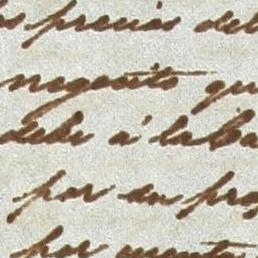 precios del
negocito qu
debe á la Ba
por su pro
por cuenta